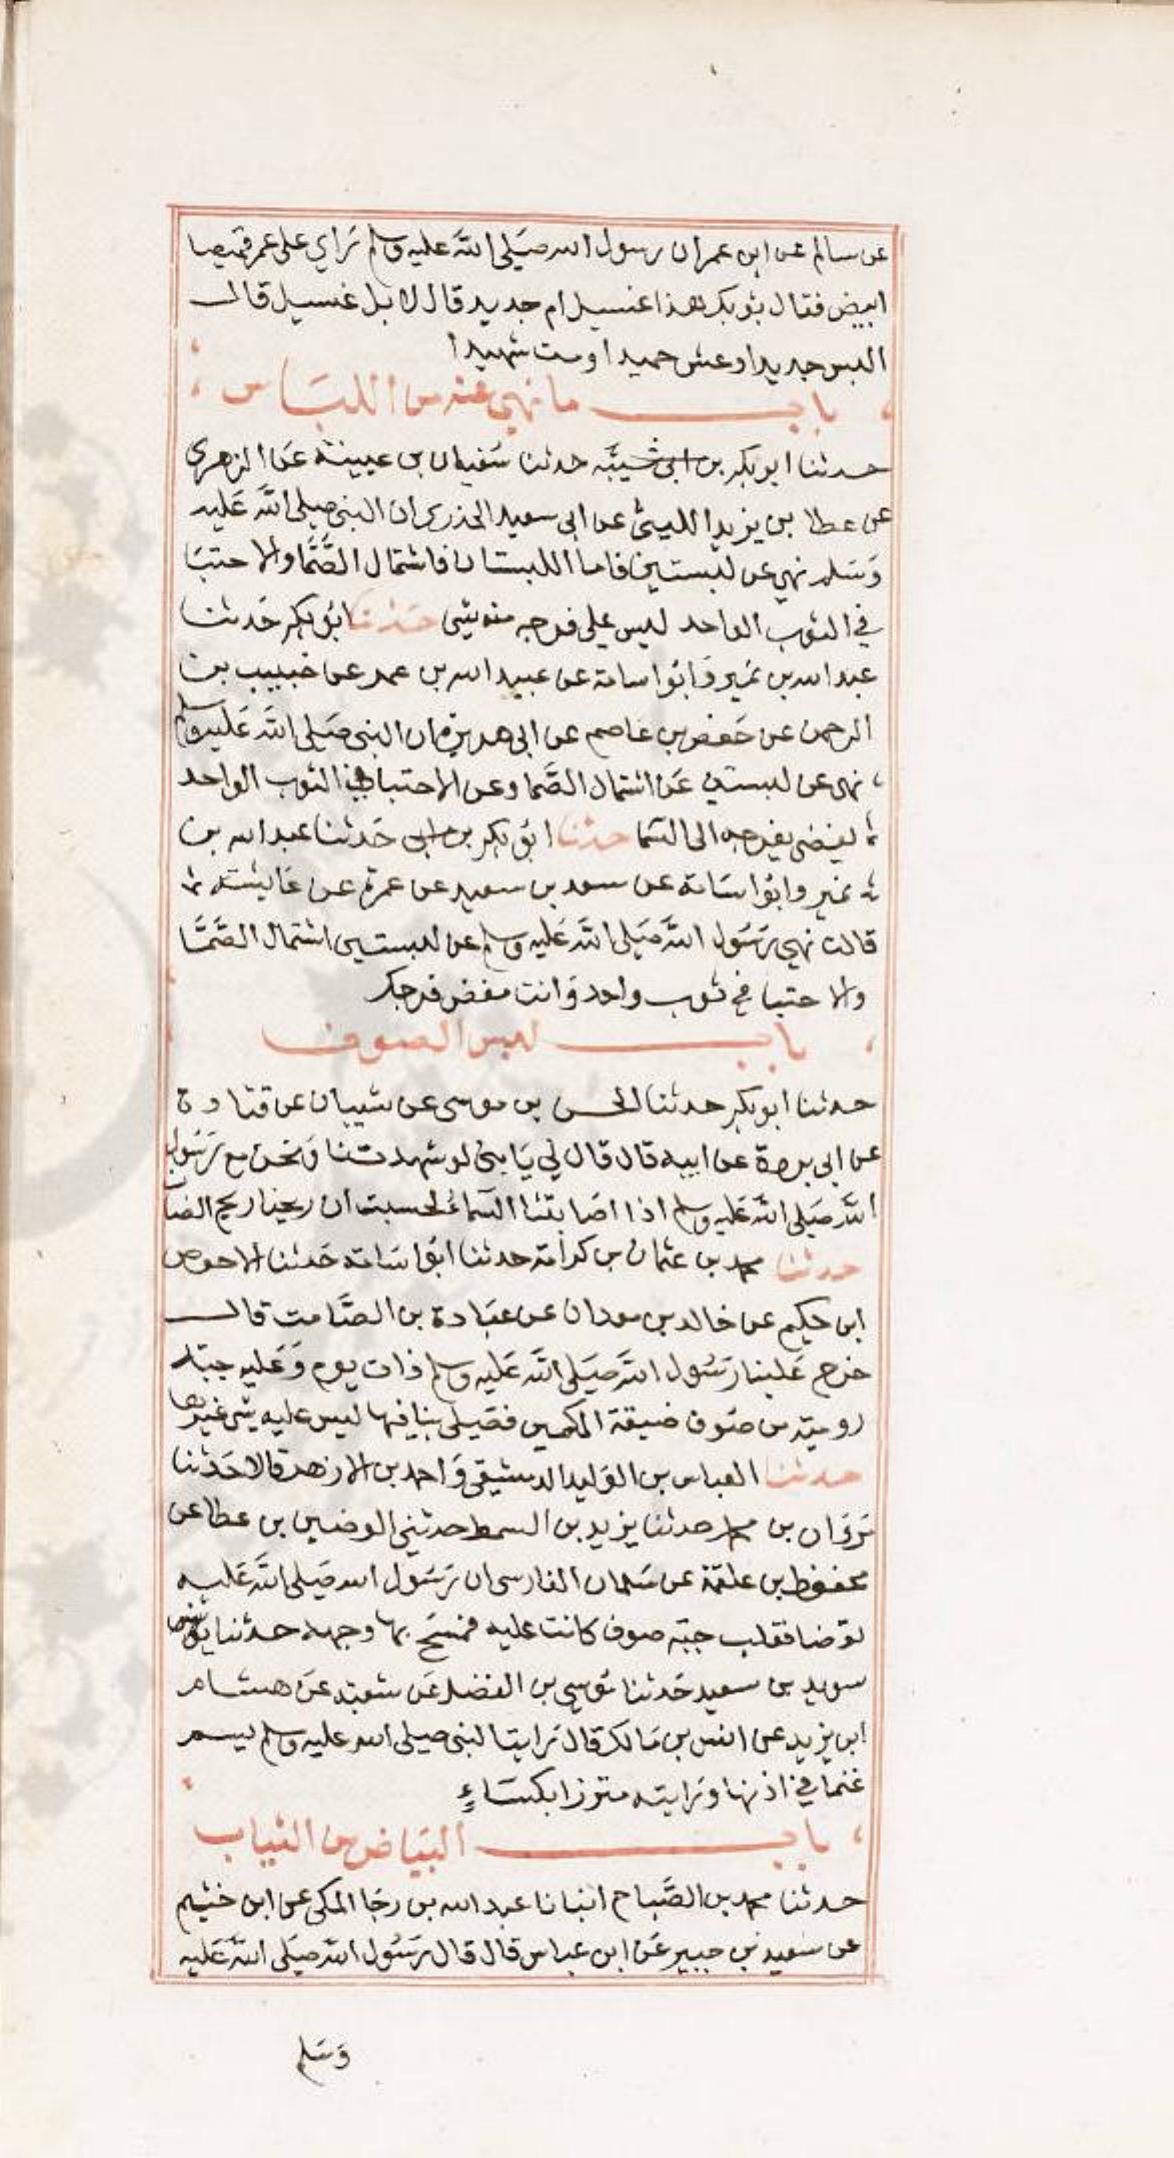 عن سالم عن ابن عمر ان رسول الله صلى الله عليه وسلم راي على عمر قميصا
ابيض فقال ثوبك هذا غسيل ام جديد قال لا بل غسيل قال
البس جديدا وعش حميدا ومت شهيدا
باب ما نهي عنه من اللباس
حدثنا ابو بكر بن ابي شيبة حدثنا سفيان بن عيينة عن الزهري
عن عطا بن يزيد الليثي عن ابي سعيد الخدري ان النبي صلى الله عليه
وسلم نهي عن لبستين فاما اللبستان فاشتمال الصما والاحتبا
في الثوب الواحد ليس على فرجه منه شي حدثنا ابو بكر حدثنا
عبد الله بن نمير وابو اسامة عن عبيد الله بن عمر عن خبيب بن
الرحمن عن حفص بن عاصم عن ابي هريرة ان النبي صلى الله عليه وسلم
نهى عن لبستين عن اشتمال الصما وعن الاحتبا في الثوب الواحد
يفضي بفرجه الى السما حدثنا ابو بكر بن ابي حدثنا عبد الله بن
نمير وابو اسامة عن سعد بن سعيد عن عمرة عن عايشة
قالت نهي رسول الله صلى الله عليه وسلم عن لبستين اشتمال الصما
والاحتبا في ثوب واحد وانت مفض فرجك
باب لبس الصوف
حدثنا ابو بكر حدثنا الحسن بن موسى عن شيبان عن قتادة
عن ابي بردة عن ابيه قال قال لي يا بني لو شهدتنا ونحن مع رسول
الله صلى الله عليه وسلم اذا اصابتنا السماء لحسبت ان ريحنا ريح الضا
حدثنا محمد بن عثمان بن كرامة حدثنا ابو اسامة حدثنا الاحوص
ابن حكيم عن خالد بن معدان عن عبادة بن الصامت قال
خرج علينا رسول الله صلى الله عليه وسلم ذات يوم وعليه جبة
رومية من صوف ضيقة الكمين فصلى بنا فيها ليس عليه شي غيرها
حدثنا العباس بن الوليد الدمشقي واحمد بن الازهر قالا حدثنا
مروان بن محمد حدثنا يزيد بن السمط حدثني الوضين بن عطا عن
محفوظ بن علقمة عن سلمان الفارسي ان رسول الله صلى الله عليه
توضا فقلب جبة صوف كانت عليه فمسح بها وجهه حدثنا
سويد بن سعيد حدثنا موسى بن الفضل عن شعبة عن هشام
ابن يزيد عن انس بن مالك قال رايت النبي صلى الله عليه وسلم يسم
غنما في اذنها ورايته متوزا بكساء
باب البياض من الثياب
حدثنا محمد بن الصباح انبانا عبد الله بن رجا المكي عن ابن خثيم
عن سعيد بن جبير عن ابن عباس قال قال رسول الله صلى الله عليه
وسلم